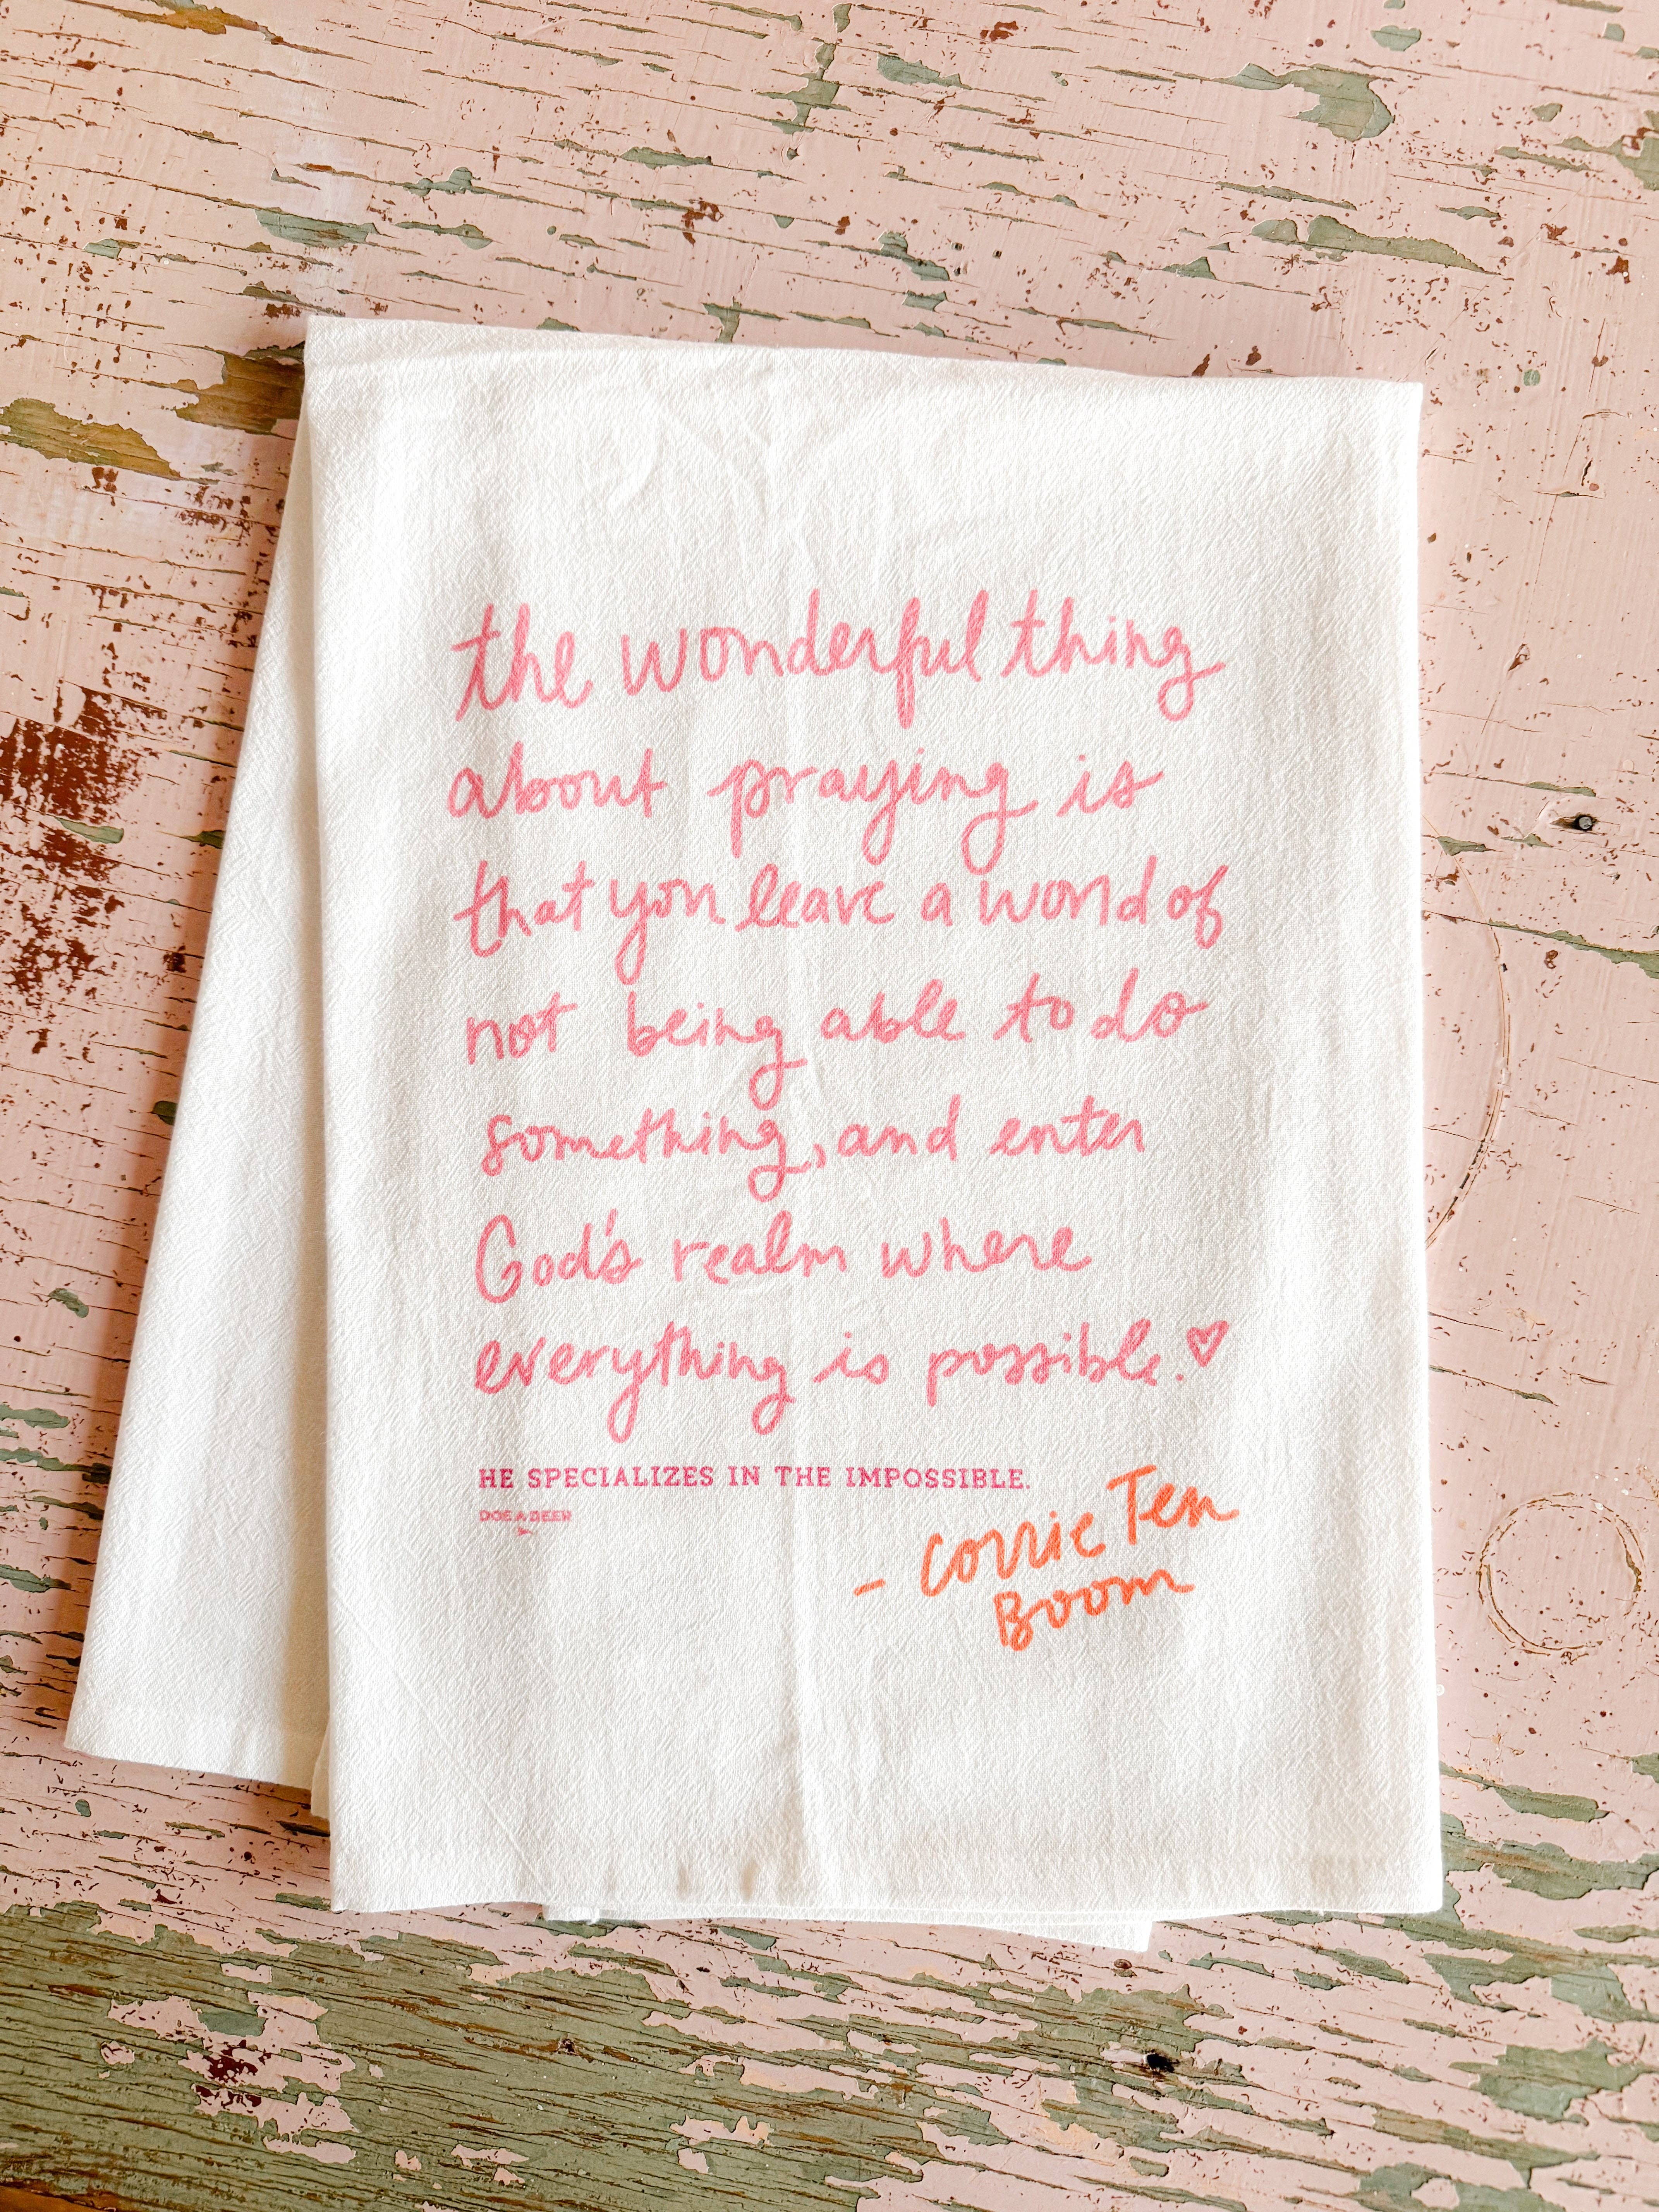 the wonderful thing
about praying is
that you leave a world of
not being able to do
something, and enter
God's realm where
everything is possible. ♡
HE SPECIALIZES IN THE IMPOSSIBLE.
DOE A DEER
- Corrie Ten
Boom